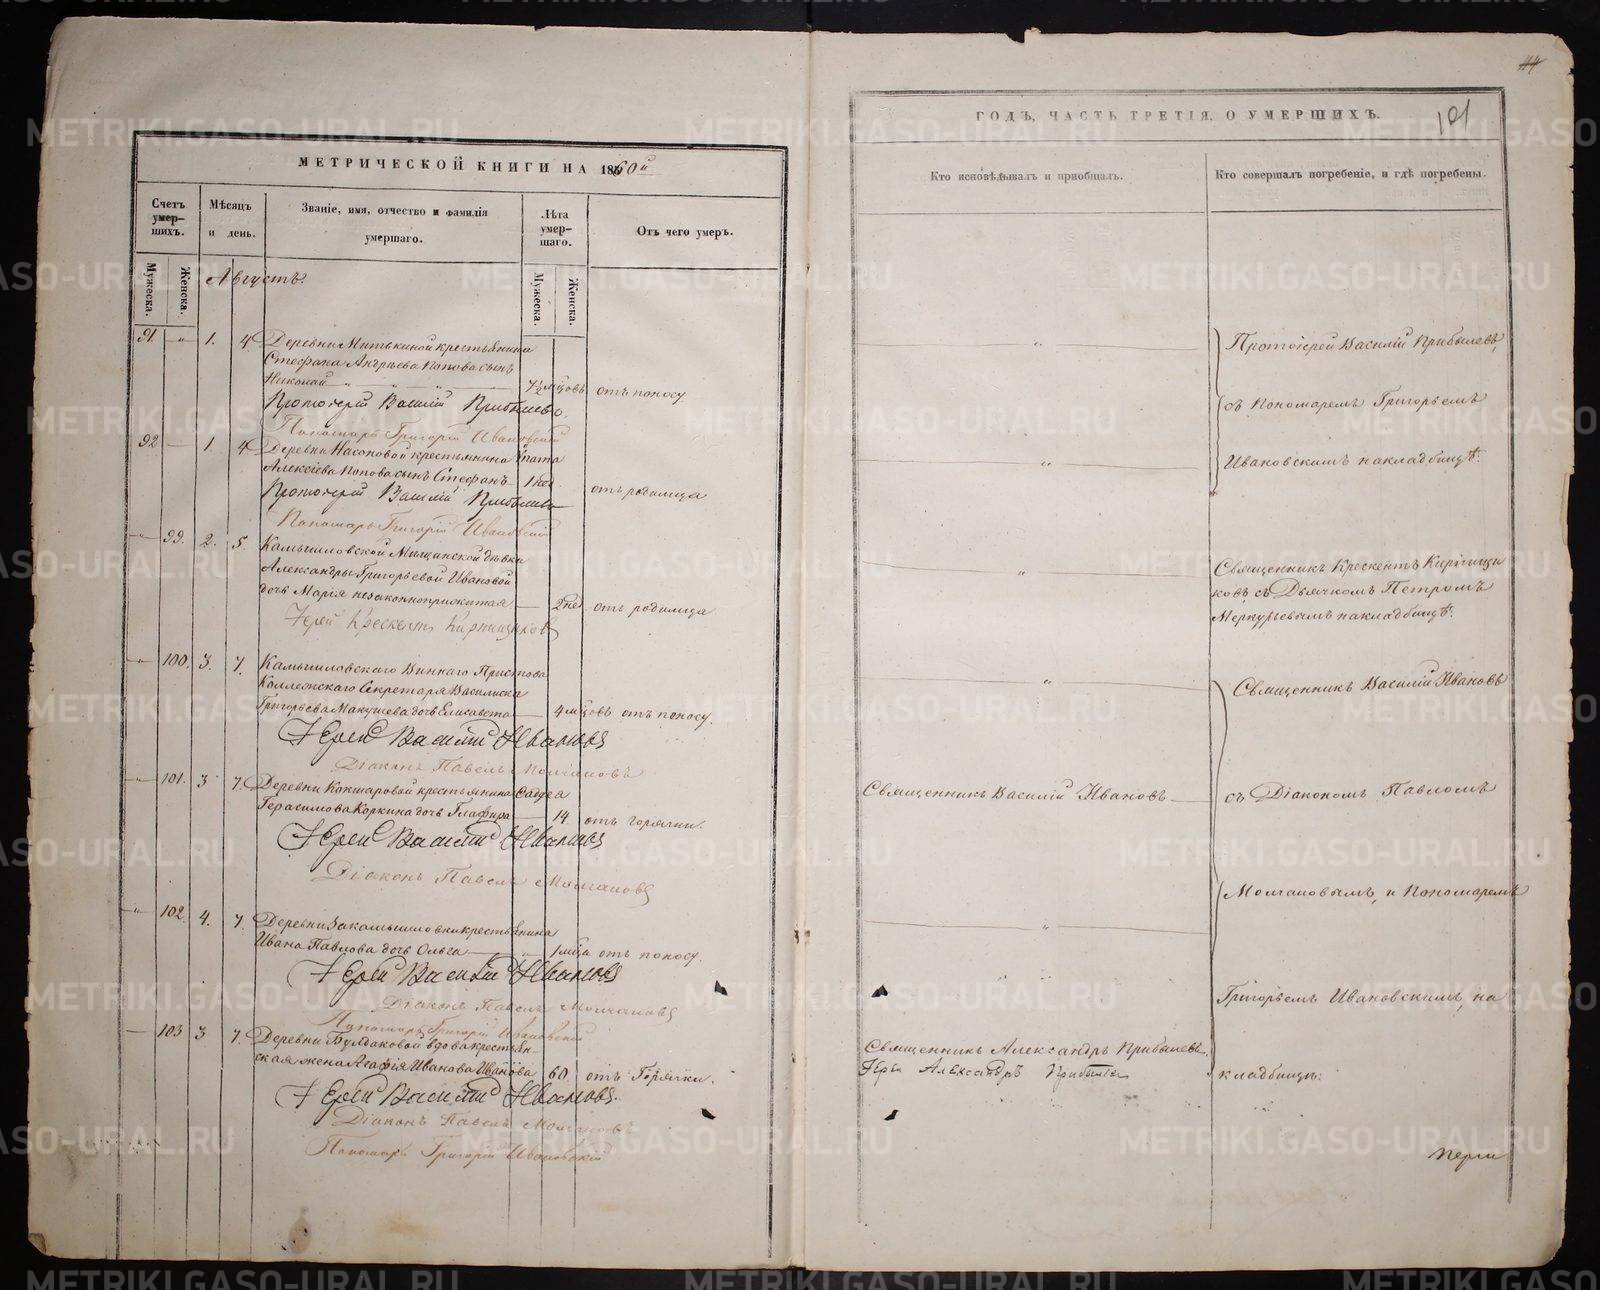 МЕТРИЧЕСКОЙ КНИГИ НА 1860й
Счетъ умер-шихъ.
Мужеска.
Женска.
Мѣсяцъ и день.
Званіе, имя, отчество и фамилія умершаго.
Лѣта умер-шаго.
Мужеска.
Женска.
Отъ чего умеръ.
Августъ.
91. " 1. 4 Деревни Митькиной крестьянина
Стефана Андреева Попова сынъ
Николай 7½ мцовъ отъ поносу
Протоіерей Василій Прибылевъ.
Пономарь Григорій Ивановскій
92 1. 4 Деревни Насоновой крестьянина Ипата
Алексѣева Попова сынъ Стефанъ 1 нед. отъ родимца
Протоіерей Василій Прибылевъ
Пономарь Григорій Ивановскій
" 99. 2. 5. Камышловской Мѣщанской дѣвки
Александры Григорьевой Ивановой
дочь Марія незаконноприжитая 2 нед отъ родимца.
Іерей Крескентъ Кирпищиковъ
" 100. 3. 7. Камышловскаго Виннаго Пристава
Коллежскаго Секретаря Василиска
Григорьева Макушева дочь Елисавета 4 мцовъ отъ поносу.
Іерей Василій Ивановъ
Діаконъ Павелъ Молчановъ
" 101. 3 7. Деревни Кокшаровой крестьянина Фаддеа
Герасимова Коркина дочь Глафира 14 отъ горячки.
Іерей Василій Ивановъ
Діаконъ Павелъ Молчановъ
" 102. 4. 7. Деревни Закамышловки крестьянина
Ивана Павлова дочь Ольга 1 мца отъ поносу.
Іерей Василій Ивановъ
Діаконъ Павелъ Молчановъ
Пономарь Григорій Ивановскій
103 3 7. Деревни Булдаковой вдова крестьян-
ская жена Агафія Иванова Иванова 60. отъ Горячки.
Іерей Василій Ивановъ.
Діаконъ Павелъ Молчановъ
Пономарь Григорій Ивановскій
ГОДЪ, ЧАСТЬ ТРЕТІЯ, О УМЕРШИХЪ.
101
Кто исповѣдывалъ и пріобщалъ.
Кто совершалъ погребеніе, и гдѣ погребены.
" Протоіерей Василій Прибылевъ,
съ Пономаремъ Григорьемъ
" Ивановскимъ на кладбищѣ.
" Священникъ Крескентъ Кирпищи
ковъ съ Дьячкомъ Петромъ
Меркурьевымъ на кладбищѣ.
" Священникъ Василій Ивановъ
Священникъ Василій Ивановъ съ Діакономъ Павломъ
Молчановымъ, и Пономаремъ
"
Григорьемъ Ивановскимъ, на
Священникъ Александръ Прибылевъ.
Іерей Александръ Прибылевъ кладбищѣ.
METRIKI.GASO-URAL.RU